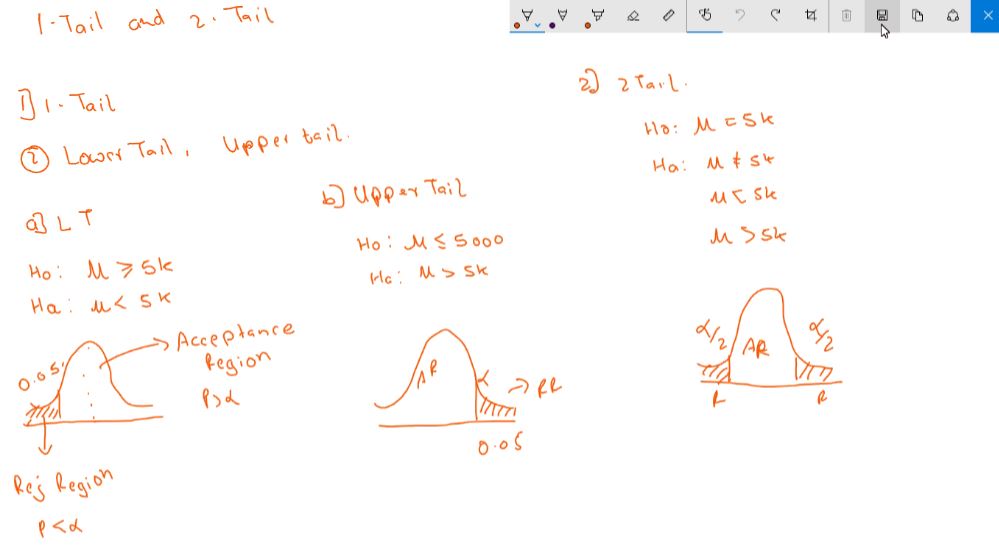 1-Tail and 2-Tail
1] 1-Tail
② Lower Tail, Upper tail.
a] LT
Ho: μ ⩾ 5k
Ha: μ < 5k
0.05
Acceptance
Region
P>α
Rej Region
P<α
b] Upper Tail
Ho: μ ≤ 5000
Ha: μ > 5k
AR
α
RR
0.05
2] 2 Tail.
Ho: μ = 5k
Ha: μ ≠ 5k
μ < 5k
μ > 5k
α/2
α/2
AR
R
R